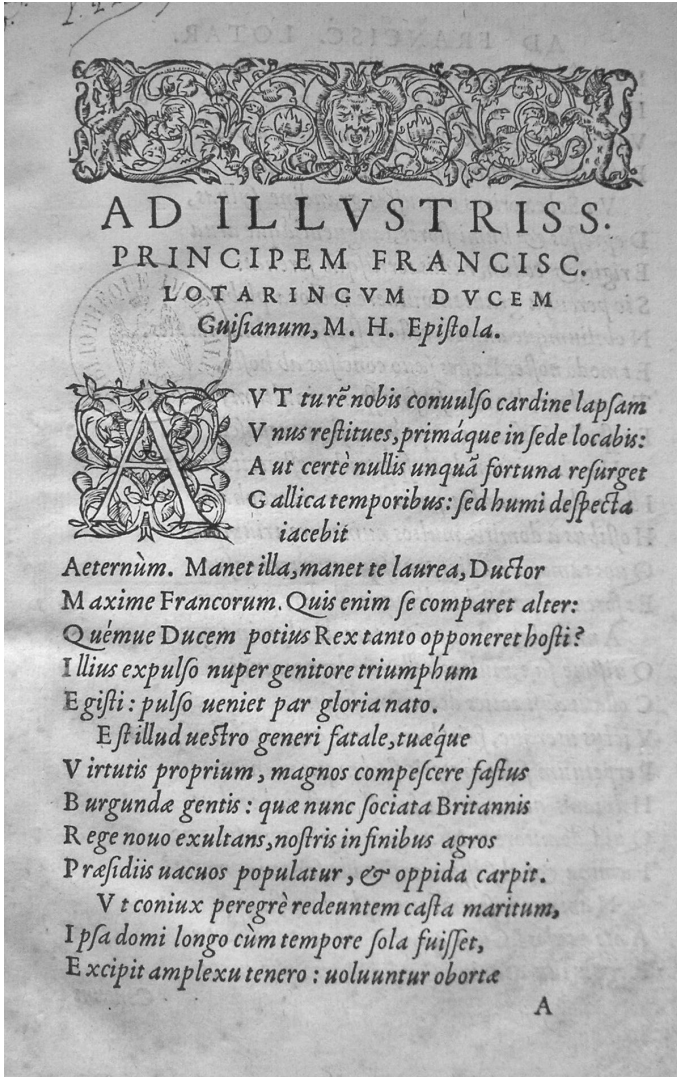 AD ILLVSTRISS.
PRINCIPEM FRANCISC.
LOTARINGVM DVCEM
Guiſianum, M. H. Epiſtola.
AVT tu rẽ nobis conuulſo cardine lapſam
Vnus reſtitues, primáque in ſede locabis:
Aut certè nullis unquã fortuna reſurget
Gallica temporibus: ſed humi deſpecta
iacebit
Aeternùm. Manet illa, manet te laurea, Ductor
Maxime Francorum. Quis enim ſe comparet alter:
Quémue Ducem potius Rex tanto opponeret hoſti?
Illius expulſo nuper genitore triumphum
Egiſti: pulſo ueniet par gloria nato.
Eſt illud ueſtro generi fatale, tuæq́ue
Virtutis proprium, magnos compeſcere faſtus
Burgundæ gentis: quæ nunc ſociata Britannis
Rege nouo exultans, noſtris in finibus agros
Præſidiis uacuos populatur, & oppida carpit.
Vt coniux peregrè redeuntem caſta maritum,
Ipſa domi longo cùm tempore ſola fuiſſet,
Excipit amplexu tenero: uoluuntur obortæ
A